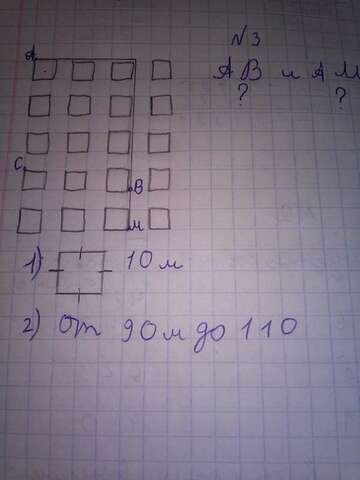 N3
A
AB и AM
? ?
C
B
M
1) 10 м
2) от 90 м до 110